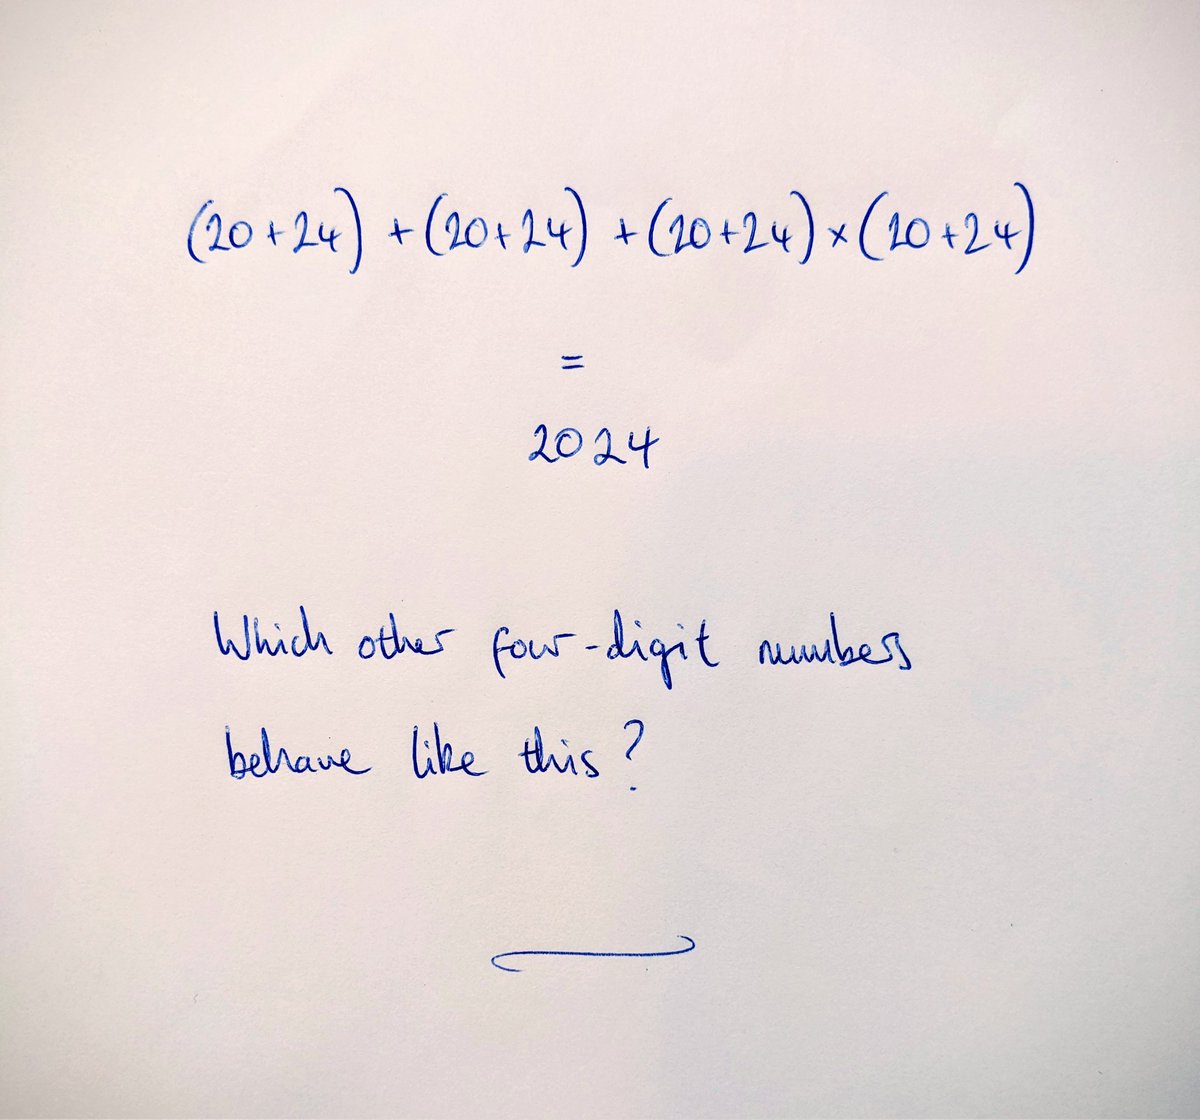 (20+24) + (20+24) + (20+24) × (20+24)
=
2024
Which other four-digit numbers
behave like this?